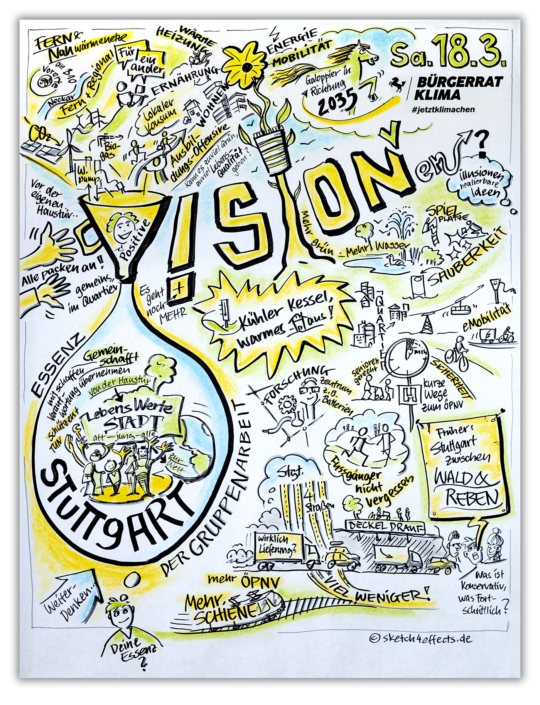 FERN &
Nah wärmenetze
Für
ein
ander
WÄRME
HEIZUNG
ENERGIE
MOBILITÄT
Sa. 18.3.
BÜRGERRAT
KLIMA
#jetztklimachen
Galoppier in
Richtung
2035
Neckar
Fern + Regional
ERNÄHRUNG
WOHNEN
Lokaler
Konsum
CO₂
Bio-
gas
W.
pump.
Ausbil-
dungs-Offensive
VISIONen
?
illusionen
realisierbare
Ideen
Vor der
eigenen
Haustür..
Positive
Alle packen an!!
gemeins.
im Quartier
Es
geht
noch
MEHR
Mehr Grün
Mehr Wasser
SPIEL
PLÄTZE
SAUBERKEIT
Kühler Kessel,
warmes Haus!
QUARTIER
eMobilität
SICHERHEIT
ESSENZ
Gemein-
schafft
von der Haustür
LebensWerte
STADT
alt-jung-alle
STUTTGART
DER GRUPPENARBEIT
FORSCHUNG
senioren
gerecht
5 min
H
kurze
Wege
zum ÖPNV
Fußgänger
nicht
vergessen
Früher:
Stuttgart
zwischen
WALD &
REBEN
Stgt.
Straßen
DECKEL DRAUF
wirklich
Lieferung?
VIEL WENIGER!
mehr ÖPNV
Mehr
SCHIENE
Was ist
Konservativ,
was Fort-
schrittlich?
Weiter
Denken..
Deine
Essenz
?
© sketch4effects.de